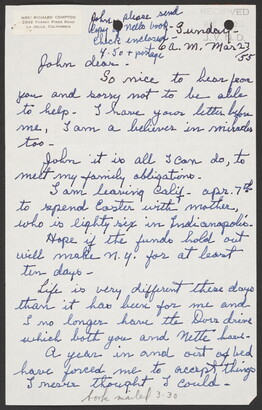 MRS. RICHARD COMPTON
LA JOLLA, CALIFORNIA
RECEIVED
John please send
copy of Nette book -
check enclosed -
4.50 + postage
Sunday -
6 A.M. Mar 23
55
John dear -
So nice to hear from
you and sorry not to be able
to help. I have your letter before
me, I am a believer in miracles
too -
John it is all I can do, to
meet my family obligations.
I am leaving Calif. apr. 7th
to spend Easter with mother,
who is eighty six in Indianapolis.
Hope if the funds hold out
will make N.Y. for at least
ten days -
Life is very different these days
than it has been for me and
I no longer have the Dors drive
which both you and Nette have.
A year in and out of bed
have forced me to accept things
I never thought I could -
book mailed 3-30